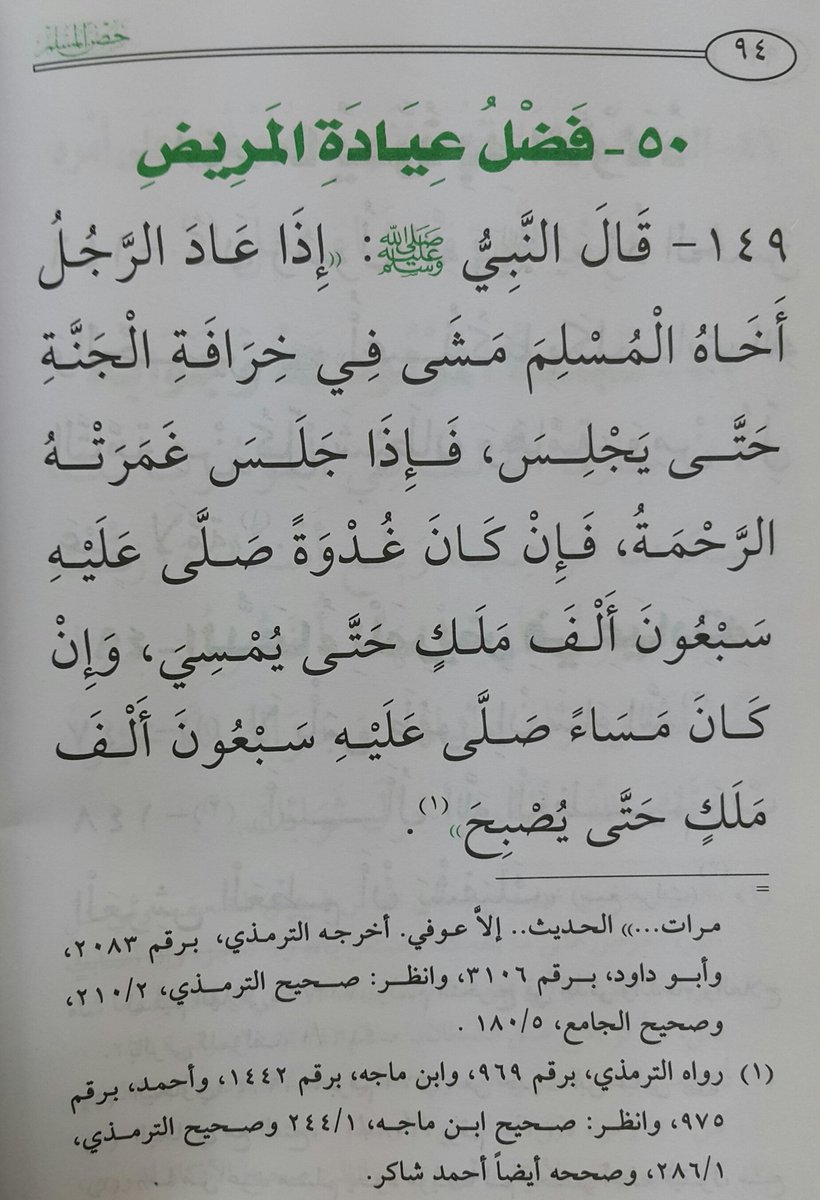 حصن المسلم
٩٤
٥٠ - فَضْلُ عِيَادَةِ المَرِيضِ
١٤٩- قَالَ النَّبِيُّ ﷺ: ((إِذَا عَادَ الرَّجُلُ
أَخَاهُ الْمُسْلِمَ مَشَى فِي خِرَافَةِ الْجَنَّةِ
حَتَّى يَجْلِسَ، فَإِذَا جَلَسَ غَمَرَتْهُ
الرَّحْمَةُ، فَإِنْ كَانَ غُدْوَةً صَلَّى عَلَيْهِ
سَبْعُونَ أَلْفَ مَلَكٍ حَتَّى يُمْسِيَ، وَإِنْ
كَانَ مَسَاءً صَلَّى عَلَيْهِ سَبْعُونَ أَلْفَ
مَلَكٍ حَتَّى يُصْبِحَ))(١).
=
مرات...)) الحديث.. إلاَّ عوفي. أخرجه الترمذي، برقم ٢٠٨٣،
وأبو داود، برقم ٣١٠٦، وانظر: صحيح الترمذي، ٢١٠/٢،
وصحيح الجامع، ١٨٠/٥ .
(١) رواه الترمذي، برقم ٩٦٩، وابن ماجه، برقم ١٤٤٢، وأحمد، برقم
٩٧٥، وانظر: صحيح ابن ماجه، ٢٤٤/١ وصحيح الترمذي،
٢٨٦/١، وصححه أيضاً أحمد شاكر.